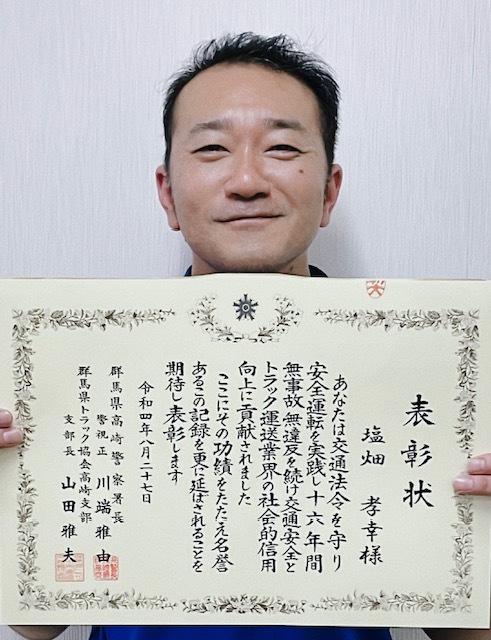 表彰状
塩畑孝幸様
あなたは交通法令を守り
安全運転を実践し十六年間
無事故・無違反を続け交通安全と
トラック運送業界の社会的信用
向上に貢献されました
ここにその功績をたたえ名誉
あるこの記録を更に延ばされることを
期待し表彰します
令和四年八月二十七日
群馬県高崎警察署長
警視正 川端雅由
群馬県トラック協会高崎支部
支部長 山田雅夫